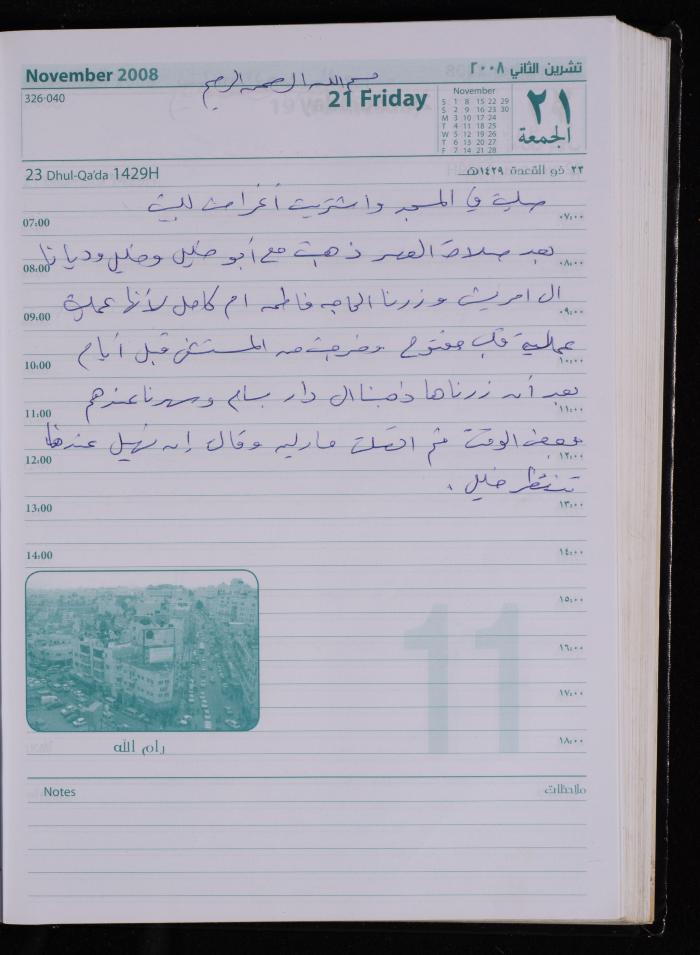 November 2008
تشرين الثاني ٢٠٠٨
بسم الله الرحمن الرحيم
326-040
21 Friday
November
S 1 8 15 22 29
S 2 9 16 23 30
M 3 10 17 24
T 4 11 18 25
W 5 12 19 26
T 6 13 20 27
F 7 14 21 28
٢١
الجمعة
23 Dhul-Qa'da 1429H
٢٣ ذو القعدة ١٤٢٩هـ
صليت في المسجد واشتريت أغراض للبيت
07:00 ٠٧:٠٠
بعد صلاة العصر ذهبت مع أبو خليل وخليل وديانا
08:00 ٠٨:٠٠
ال امريش وزرنا الحاجه فاطمه ام كامل لأنها عملت
09:00 ٠٩:٠٠
عملية قلب مفتوح وخرجت من المستشفى قبل أيام
10:00 ١٠:٠٠
بعد أن زرناها ذهبنا ال دار بسام وسهرنا عندهم
11:00 ١١:٠٠
بعض الوقت ثم اتصلت وقال إن عندها
12:00 ١٢:٠٠
تنتظر خليل .
13:00 ١٣:٠٠
14:00 ١٤:٠٠
١٥:٠٠
١٦:٠٠
١٧:٠٠
١٨:٠٠
11
رام الله
Notes
ملاحظات